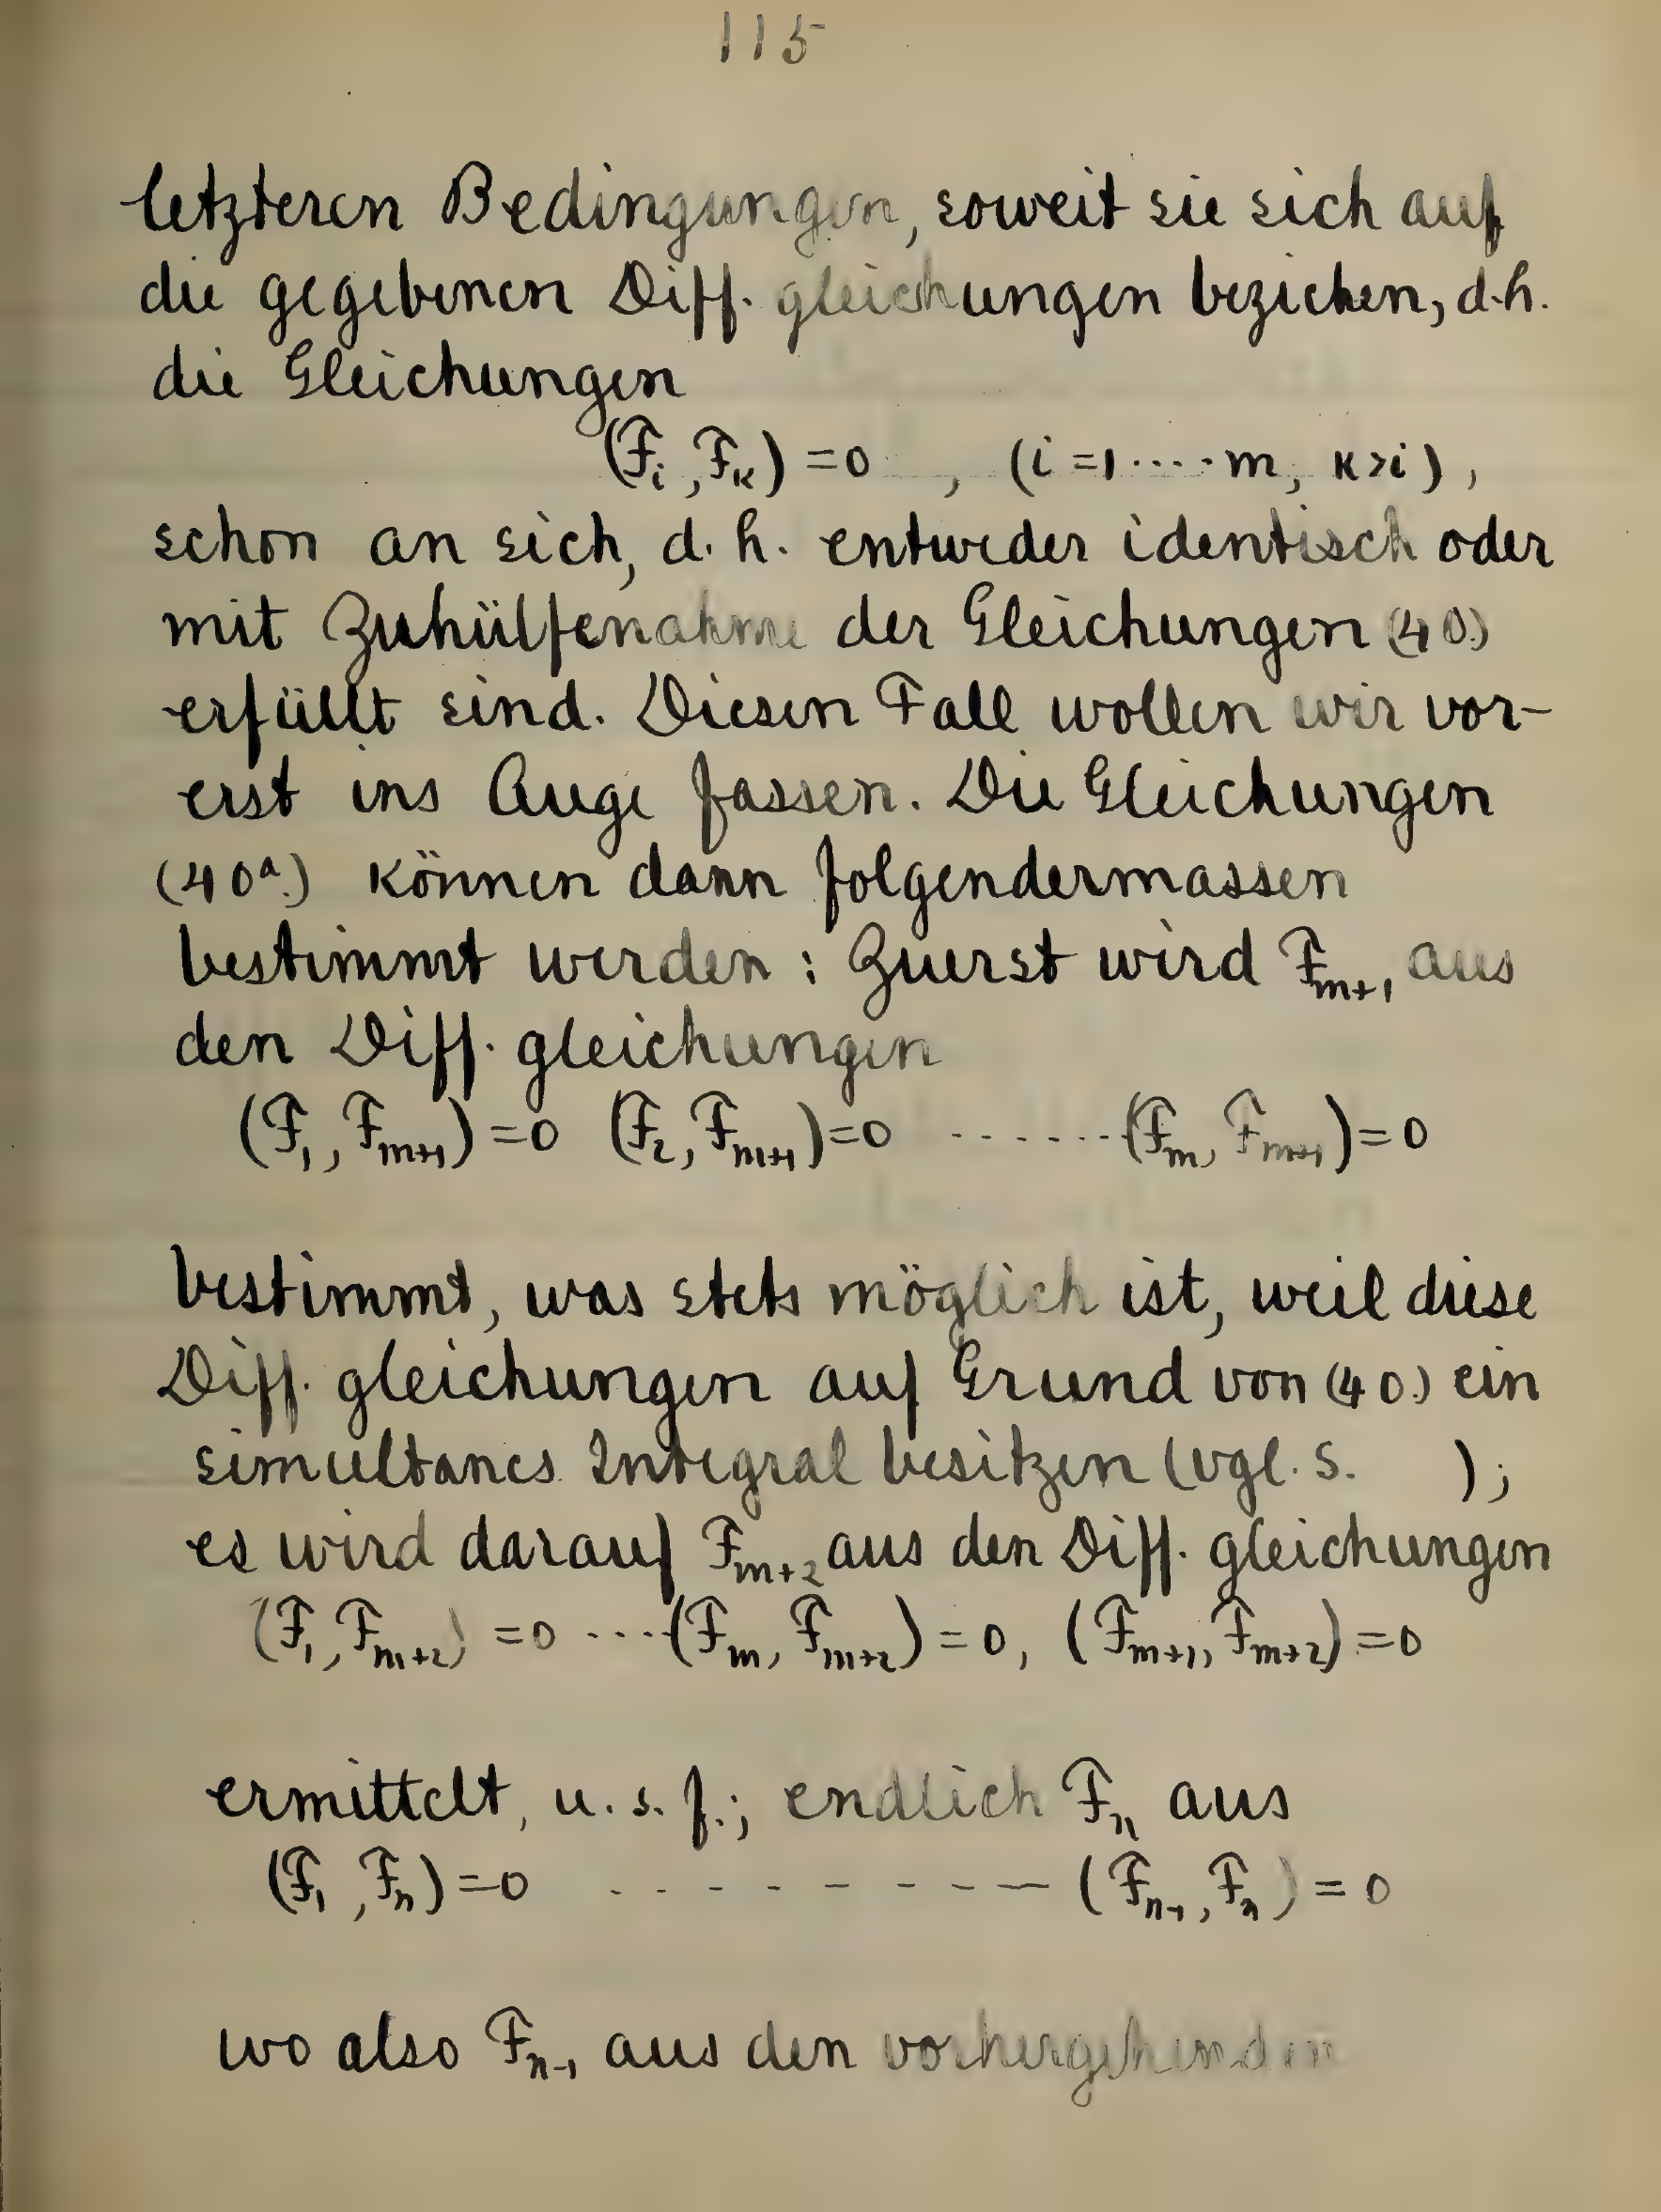 115
letzteren Bedingungen, soweit sie sich auf
die gegebenen Diff. gleichungen beziehen, d.h.
die Gleichungen
(F_i, F_k) = 0 , (i = 1 ····· m, k > i),
schon an sich, d. h. entweder identisch oder
mit Zuhülfenahme der Gleichungen (40.)
erfüllt sind. Diesen Fall wollen wir vor-
erst ins Auge fassen. Die Gleichungen
(40ª.) können dann folgendermassen
bestimmt werden : Zuerst wird F_{m+1} aus
den Diff. gleichungen
(F_1, F_{m+1}) = 0 (F_2, F_{m+1}) = 0 ······· (F_m, F_{m+1}) = 0
bestimmt, was stets möglich ist, weil diese
Diff. gleichungen auf Grund von (40.) ein
simultanes Integral besitzen (vgl. S. );
es wird darauf F_{m+2} aus den Diff. gleichungen
(F_1, F_{m+2}) = 0 ···· (F_m, F_{m+2}) = 0, (F_{m+1}, F_{m+2}) = 0
ermittelt, u. s. f.; endlich F_n aus
(F_1, F_n) = 0 - - - - - - - - (F_{n-1}, F_n) = 0
wo also F_{n-1} aus den vorhergehenden